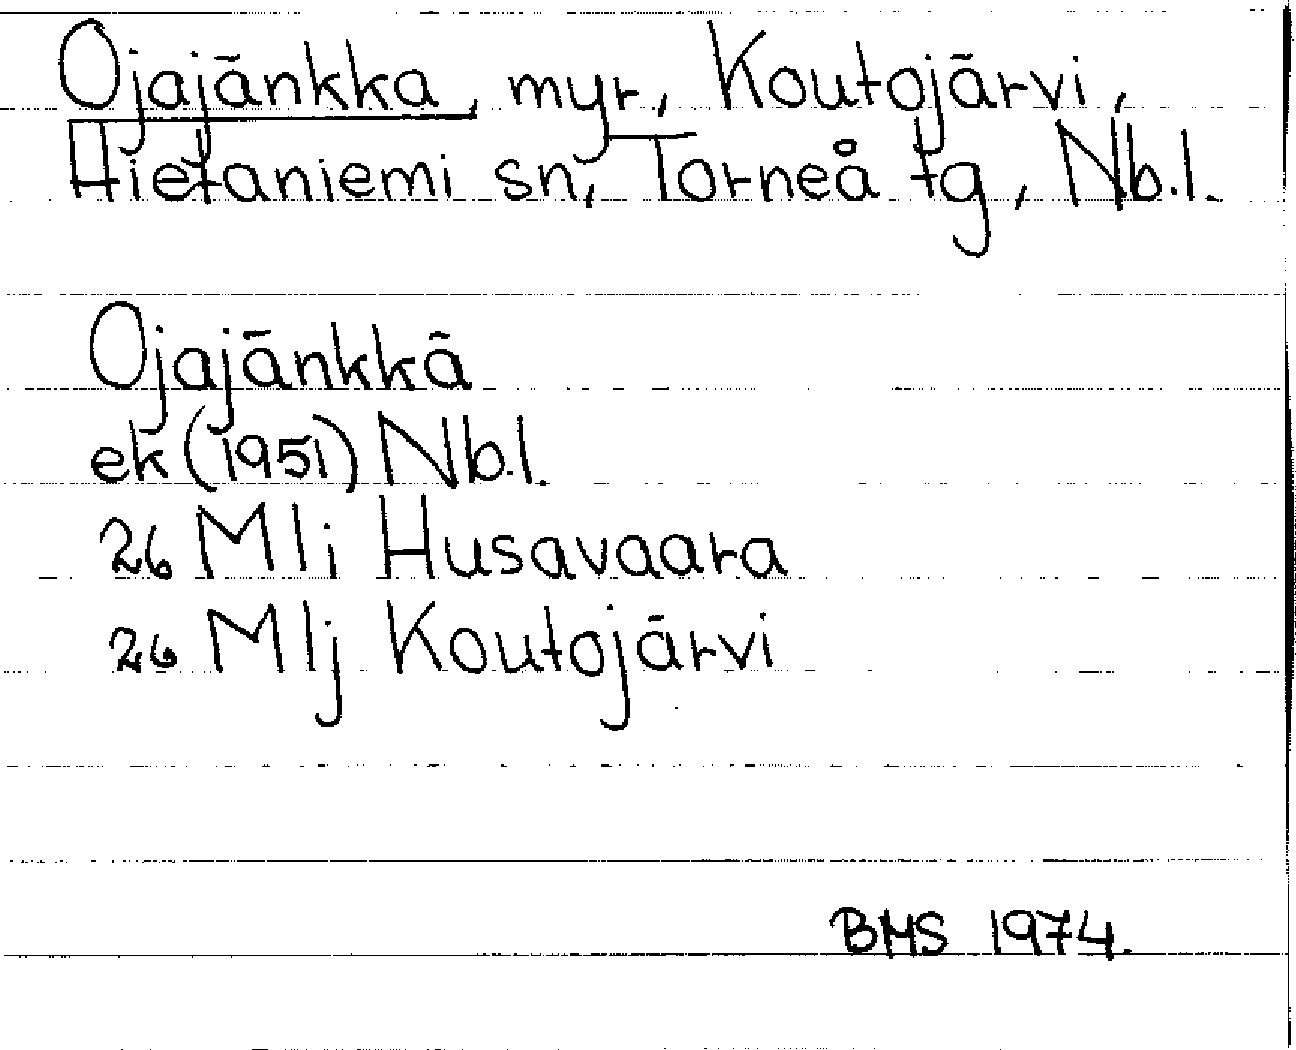 Ojajänkka, myr, Koutojärvi,
Hietaniemi sn, Torneå tg, Nb.l.
Ojajänkkä
ek (1951) Nb.l.
26 M lj Husavaara
26 M lj Koutojärvi
BMS 1974.